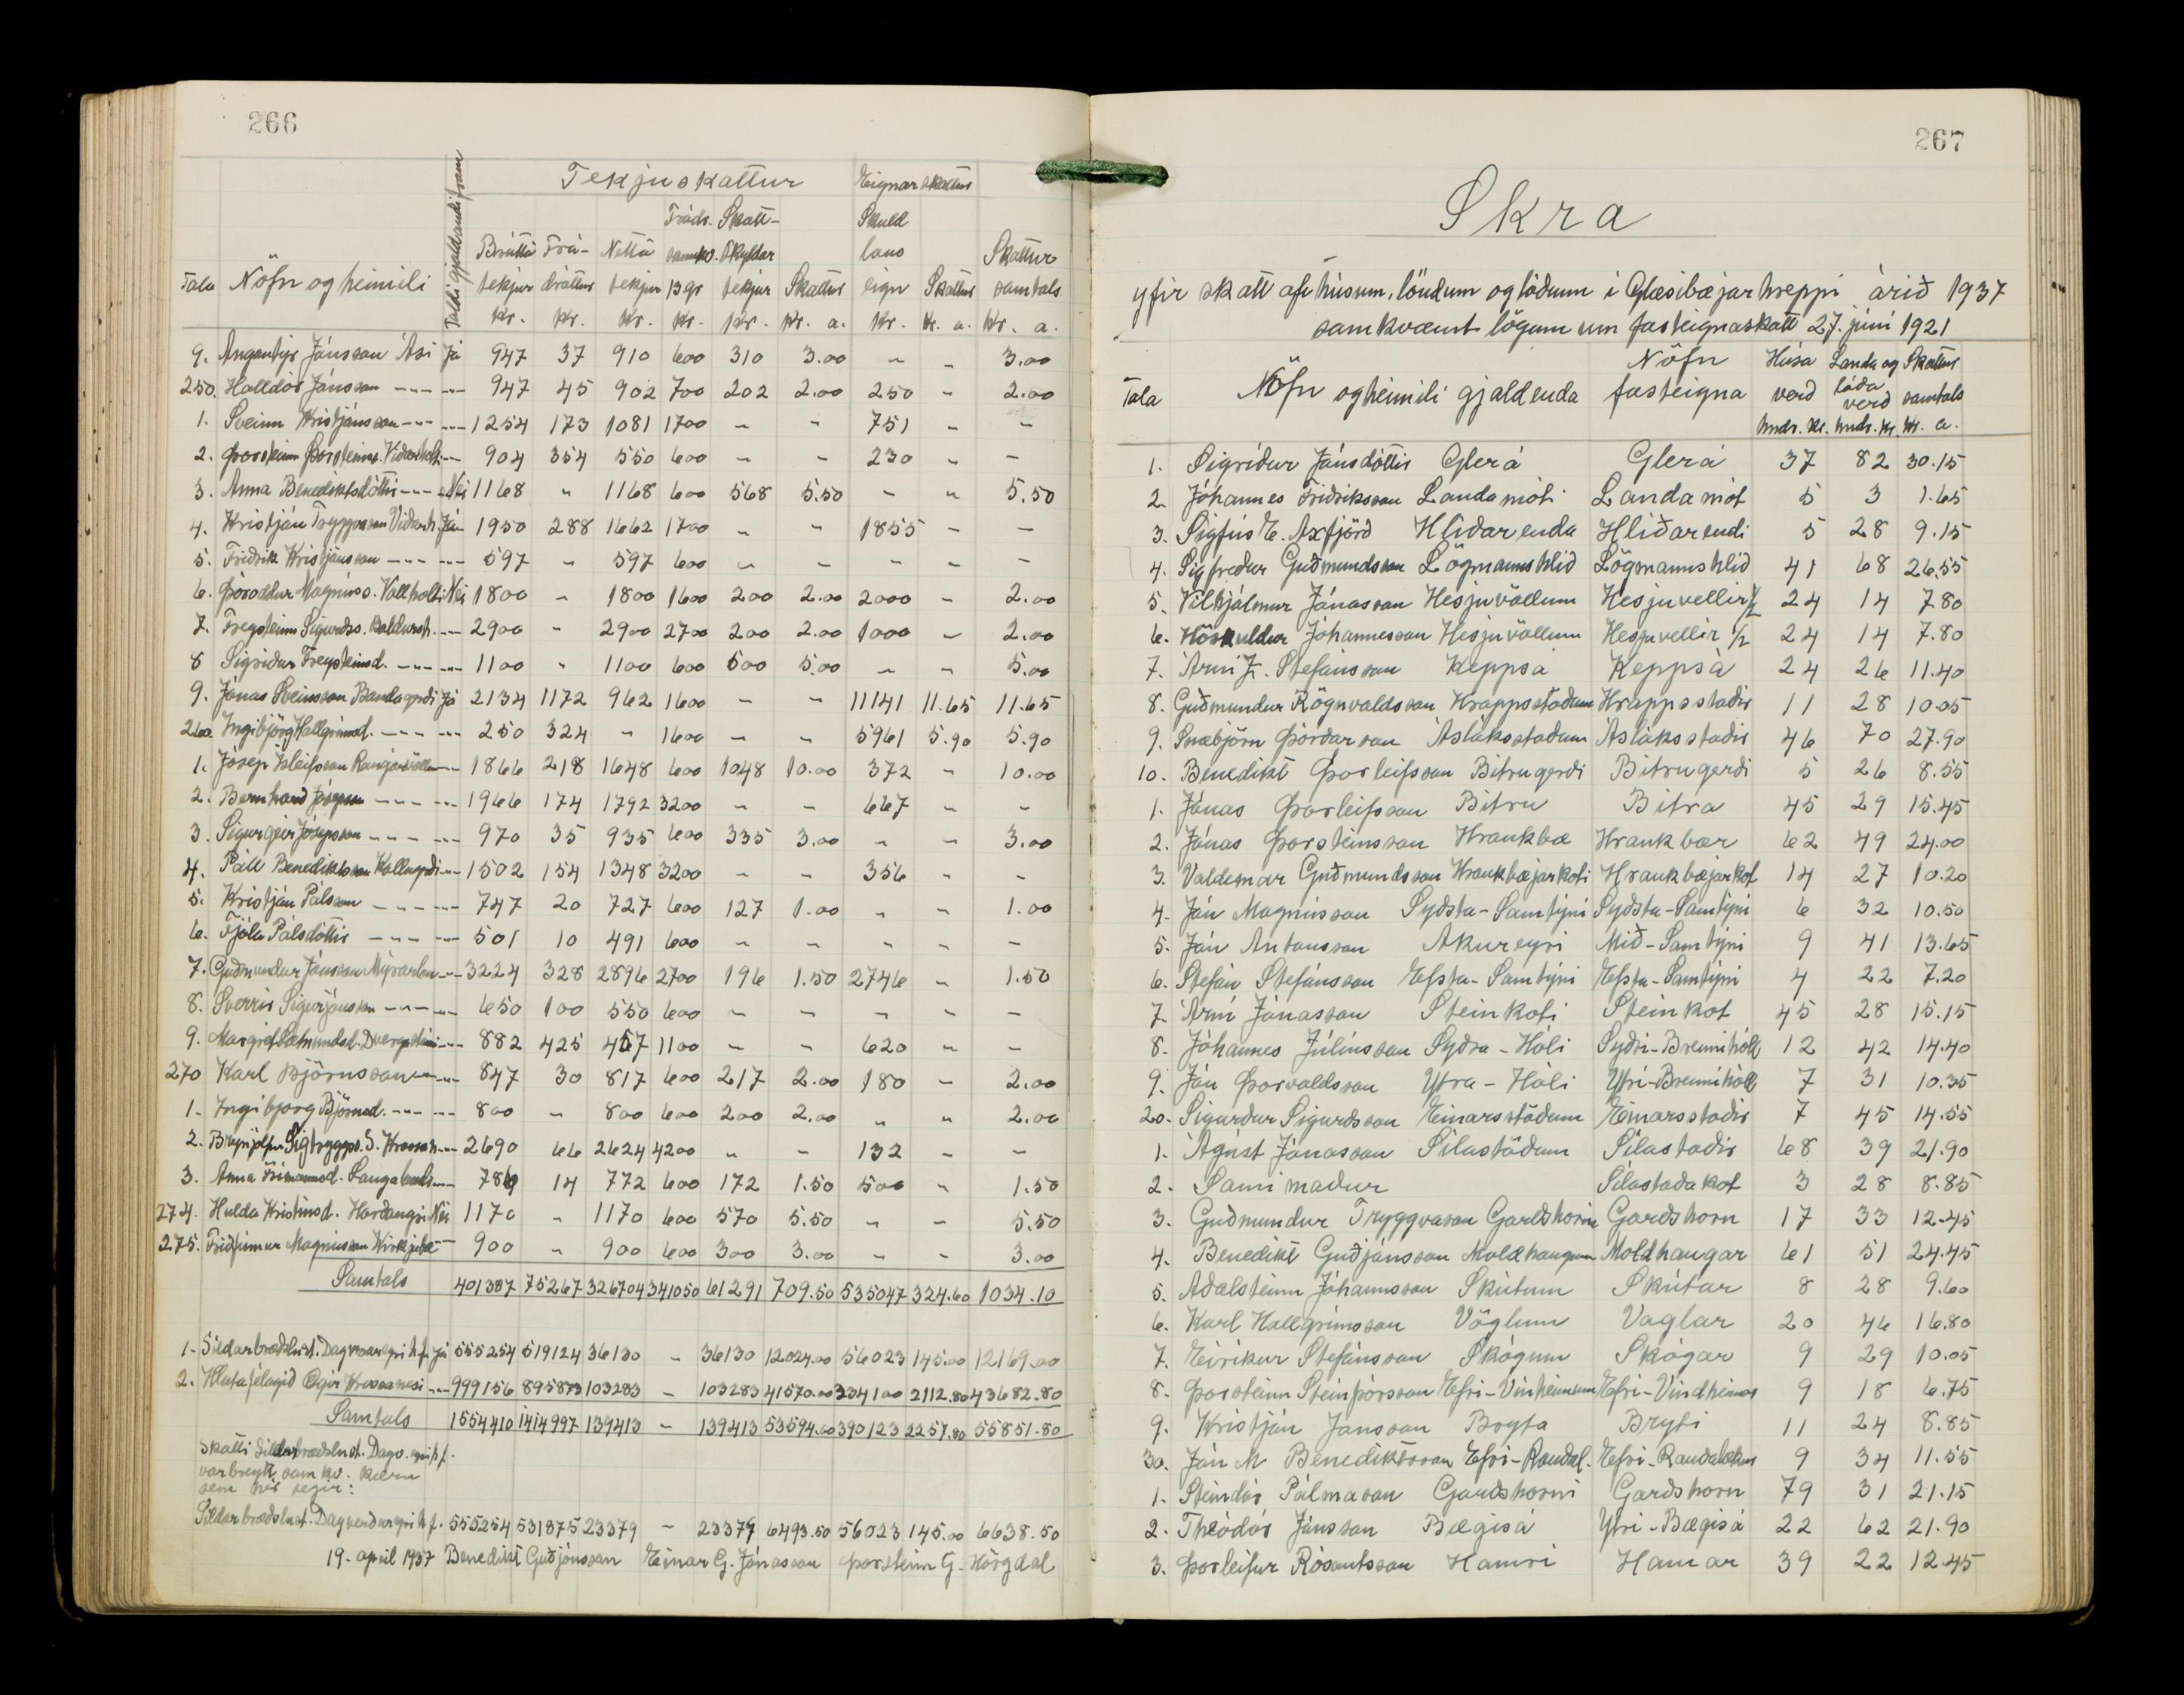 266
Tekjuskattur Eignarskattur
Taldi gjaldandi fram
Frádr. Skatt- Skuld
Brúttó Frá- Nettó samkv. skyldar laus Skattur
Tala Nöfn og heimili tekjur dráttur tekjur 13 gr tekjur Skattur eign Skattur samtals
Kr. Kr. Kr. Kr. Kr. Kr. a. Kr. Kr. a. Kr. a.
9. Angantýr Jónsson Ási Já 947 37 910 600 310 3.00 - - 3.00
250. Halldór Jónsson -"- -"- 947 45 902 700 202 2.00 250 - 2.00
1. Sveinn Kristjánsson -"- -"- 1254 173 1081 1700 - - 751 - -
2. Þorsteinn Þorsteinss. -"- 904 354 550 600 - - 230 - -
3. Anna Benediktsdóttir -"- Nei 1168 " 1168 600 568 5.50 - " 5.50
4. Kristján Tryggvason Viðarh. Já 1950 288 1662 1700 - " 1855 - -
5. Friðrik Kristjánsson -"- -"- 597 " 597 600 - - - - -
6. Þóroddur Magnúss. Vallholti Nei 1800 - 1800 1600 200 2.00 2000 - 2.00
7. Freysteinn Sigurðss. -"- 2900 " 2900 2700 200 2.00 1000 - 2.00
8 Sigríður Freysteinsd. -"- -"- 1100 " 1100 600 500 5.00 - " 5.00
9. Jónas Sveinsson Bandagerði Já 2134 1172 962 1600 - " 11141 11.65 11.65
260 Ingibjörg Hallgrímsd. -"- -"- 250 324 - 1600 - - 5961 5.90 5.90
1. Jósep Ísleifsson Rangárvöllum -"- 1866 218 1648 600 1048 10.00 372 - 10.00
2. Bernharð Jósepsson -"- -"- 1966 174 1792 3200 - - 667 - -
3. Sigurgeir Jósepsson -"- -"- 970 35 935 600 335 3.00 - - 3.00
4. Páll Benediktsson Kollugerði -"- 1502 154 1348 3200 - - 356 - -
5. Kristján Pálsson -"- -"- 747 20 727 600 127 1.00 " - 1.00
6. Fjóla Pálsdóttir -"- -"- 501 10 491 600 - - " " -
7. Guðmundur Jónsson Mýrarlóni -"- 3224 328 2896 2700 196 1.50 2746 " 1.50
8. Sverrir Sigurjónsson -"- -"- 650 100 550 600 - - - " -
9. Margrét Sæmundsd. -"- 882 425 457 1100 - - 620 " -
270 Karl Björnsson -"- -"- 847 30 817 600 217 2.00 180 - 2.00
1. Ingibjörg Björnsd. -"- -"- 800 - 800 600 200 2.00 " " 2.00
2. Brynjólfur Sigtryggss. -"- 2690 66 2624 4200 " - 132 - -
3. Anna -"- 786 14 772 600 172 1.50 500 " 1.50
274. Hulda Kristinsd. Harðangri Nei 1170 " 1170 600 570 5.50 - - 5.50
275. Friðfinnur Magnússon 900 " 900 600 300 3.00 - - 3.00
Samtals 401387 75267 326704 341050 61291 709.50 535047 324.60 1034.10
1. Síldarbræðslust. Dagverðareyri h.f. já 555254 519124 36130 - 36130 12024.00 56023 145.00 12169.00
2. Hlutafélagið Ægir Krossanesi -"- 999156 895873 103283 - 103283 41570.00 334100 2112.80 43682.80
Samtals 1554410 1414997 139413 - 139413 53594.00 390123 2257.80 55851.80
Skatti Síldarbræðslust. Dagv.eyri h.f.
var breytt samkv. kæru
sem hér segir:
Síldarbræðslust. Dagverðareyri h.f. 555254 531875 23379 - 23379 6493.50 56023 145.00 6638.50
19. apríl 1937 Benedikt Guðjónsson Einar G. Jónasson Þorsteinn G. Hörgdal
267
Skra
yfir skatt af húsum, löndum og lóðum í Glæsibæjarhreppi árið 1937
samkvæmt lögum um fasteignaskatt 27. júní 1921
Tala Nöfn og heimili gjaldenda Nöfn fasteigna Húsa verð Landa og lóða verð Skattur samtals
hndr. kr. hndr. kr. kr. a.
1. Sigríður Jónsdóttir Glerá Glerá 37 82 30.15
2. Jóhannes Friðriksson Landamóti Landamót 5 3 1.65
3. Sigfús E. Axfjörð Hlíðarenda Hlíðarendi 5 28 9.15
4. Sigfreður Guðmundsson Lögmannshlíð Lögmannshlíð 41 68 26.55
5. Vilhjálmur Jónasson Hesjuvöllum Hesjuvellir 1/2 24 14 7.80
6. Höskuldur Jóhannesson Hesjuvöllum Hesjuvellir 1/2 24 14 7.80
7. Árni J. Stefánsson Keppsá Keppsá 24 26 11.40
8. Guðmundur Rögnvaldsson Hrappsstöðum Hrappsstaðir 11 28 10.05
9. Snæbjörn Þórðarson Ásláksstöðum Ásláksstaðir 46 70 27.90
10. Benedikt Þorleifsson Bitrugerði Bitrugerði 5 26 8.55
1. Jónas Þorleifsson Bitru Bitra 45 29 15.45
2. Jónas Þorsteinsson Hraukbæ Hraukbær 62 49 24.00
3. Valdemar Guðmundsson Hraukbæjarkoti Hraukbæjarkot 14 27 10.20
4. Jón Magnússon Syðsta-Samtýni Syðsta-Samtýni 6 32 10.50
5. Jón Antonsson Akureyri Mið-Samtýni 9 41 13.65
6. Stefán Stefánsson Efsta-Samtýni Efsta-Samtýni 4 22 7.20
7. Árni Jónasson Steinkoti Steinkot 45 28 15.15
8. Jóhannes Júlíusson Syðra-Hóli Syðri-Brennihóll 12 42 14.40
9. Jón Þorvaldsson Ytra-Hóli Ytri-Brennihóll 7 31 10.35
20. Sigurður Sigurðsson Einarsstöðum Einarsstaðir 7 45 14.55
1. Ágúst Jónasson Sílastöðum Sílastaðir 68 39 21.90
2. Sami maður Sílastaðakot 3 28 8.85
3. Guðmundur Tryggvason Garðshorni Garðshorn 17 33 12.45
4. Benedikt Guðjónsson Moldhaugum Moldhaugar 61 51 24.45
5. Aðalsteinn Jóhannsson Skútum Skútar 8 28 9.60
6. Karl Hallgrímsson Vöglum Vaglar 20 46 16.80
7. Eiríkur Stefánsson Skógum Skógar 9 29 10.05
8. Þorsteinn Steinþórsson Efri-Vinheimum Efri-Vindheimar 9 18 6.75
9. Kristján Jónsson Bryta Bryti 11 24 8.85
30. Jón M Benediktsson Efri-Rauðal. Efri-Rauðalækur 9 34 11.55
1. Steindór Pálmason Garðshorni Garðshorn 79 31 21.15
2. Theódór Jónsson Bægisá Ytri-Bægisá 22 62 21.90
3. Þorleifur Rósantsson Hamri Hamar 39 22 12.45